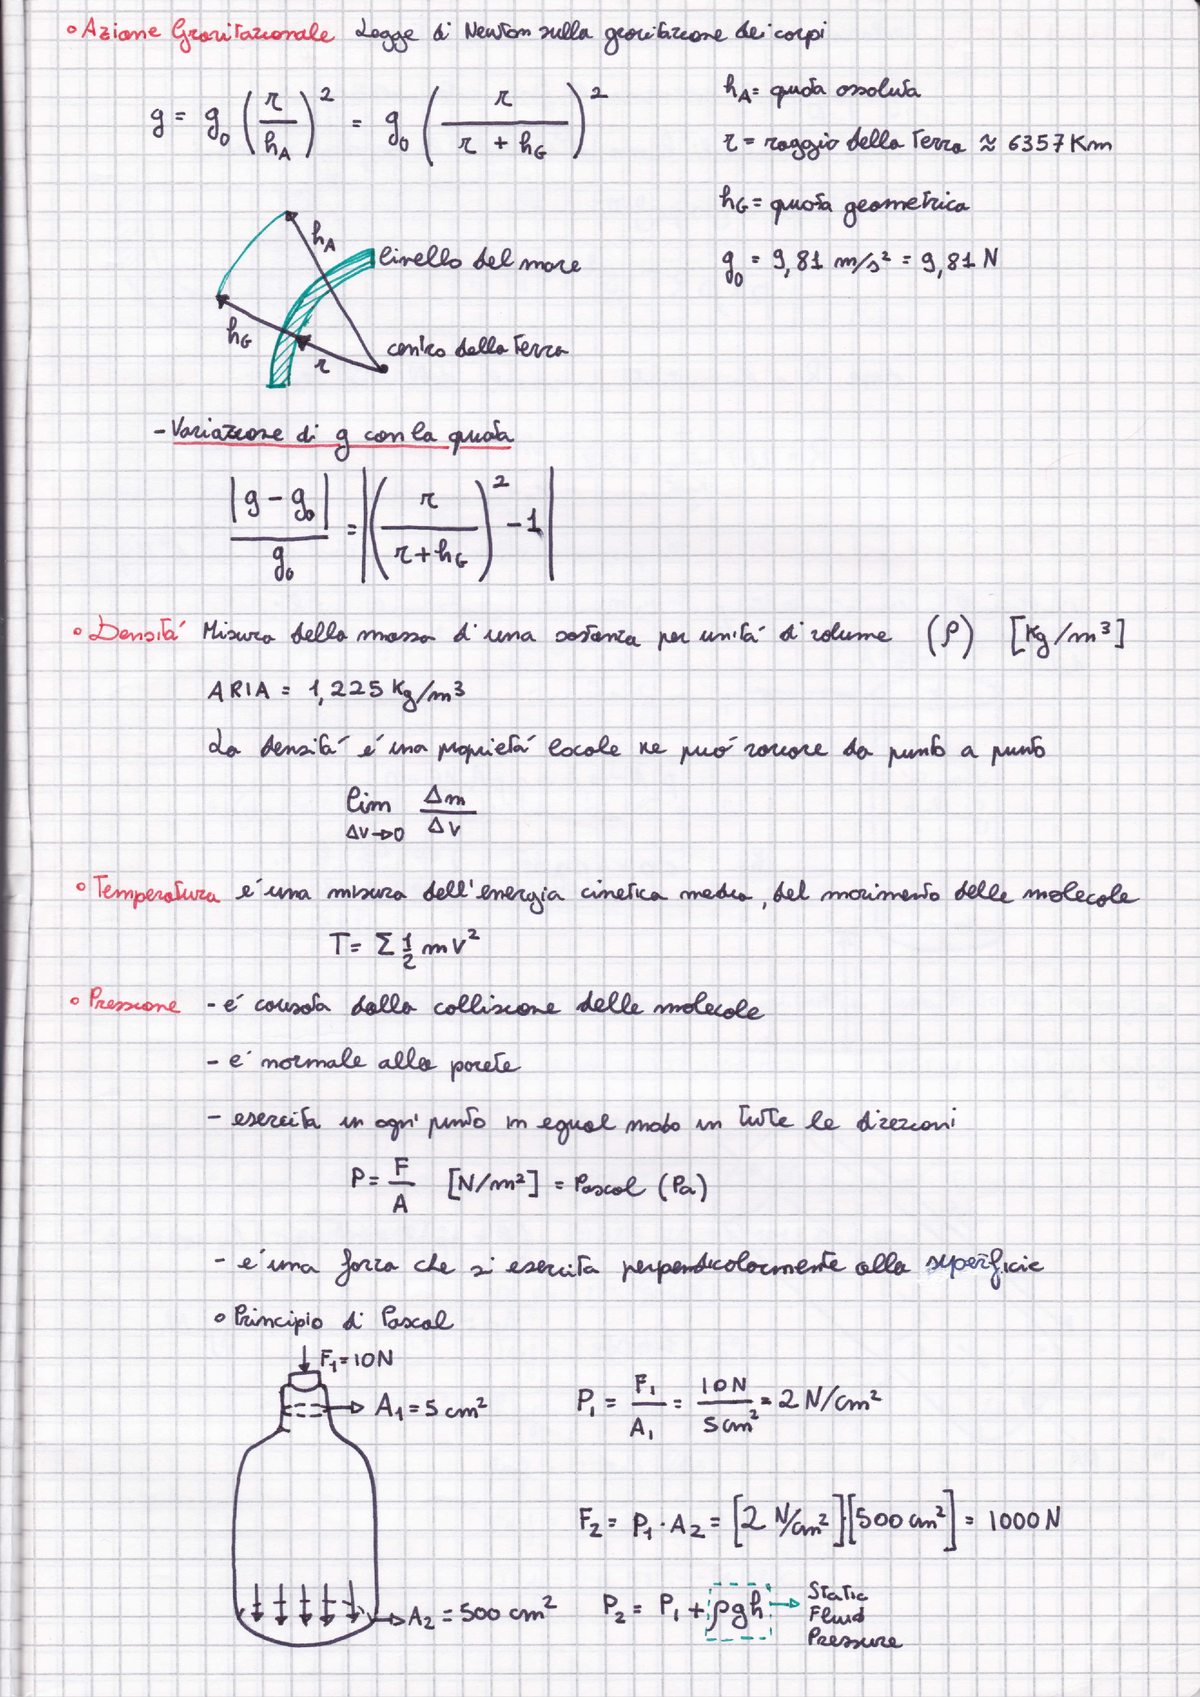 ° Azione Gravitazionale Legge di Newton sulla gravitazione dei corpi
g = g₀ (r/hA)² = g₀ (r/(r + hG))²
hA = quota assoluta
r = raggio della Terra ≈ 6357 Km
hG = quota geometrica
g₀ = 9,81 m/s² = 9,81 N
hA
livello del mare
hG
r
centro della Terra
- Variazione di g con la quota
|g - g₀|/g₀ = |(r/(r + hG))² - 1|
° Densitá Misura della massa di una sostanza per unitá di volume (ρ) [Kg/m³]
ARIA = 1,225 Kg/m³
La densitá é una proprietá locale ne puó variare da punto a punto
lim ΔV→0 Δm/ΔV
° Temperatura é una misura dell'energia cinetica media, del movimento delle molecole
T = Σ ½ m V²
° Pressione - é causata dalla collisione delle molecole
- é normale alla parete
- esercita in ogni punto in egual modo in tutte le direzioni
P = F/A [N/m²] = Pascal (Pa)
- é una forza che si esercita perpendicolarmente alla superficie
° Principio di Pascal
F₁ = 10N
A₁ = 5 cm²
P₁ = F₁/A₁ = 10N/5cm² = 2 N/cm²
F₂ = P₁ · A₂ = [2 N/cm²][500 cm²] = 1000 N
A₂ = 500 cm²
P₂ = P₁ + ρgh → Static
Fluid
Pressure